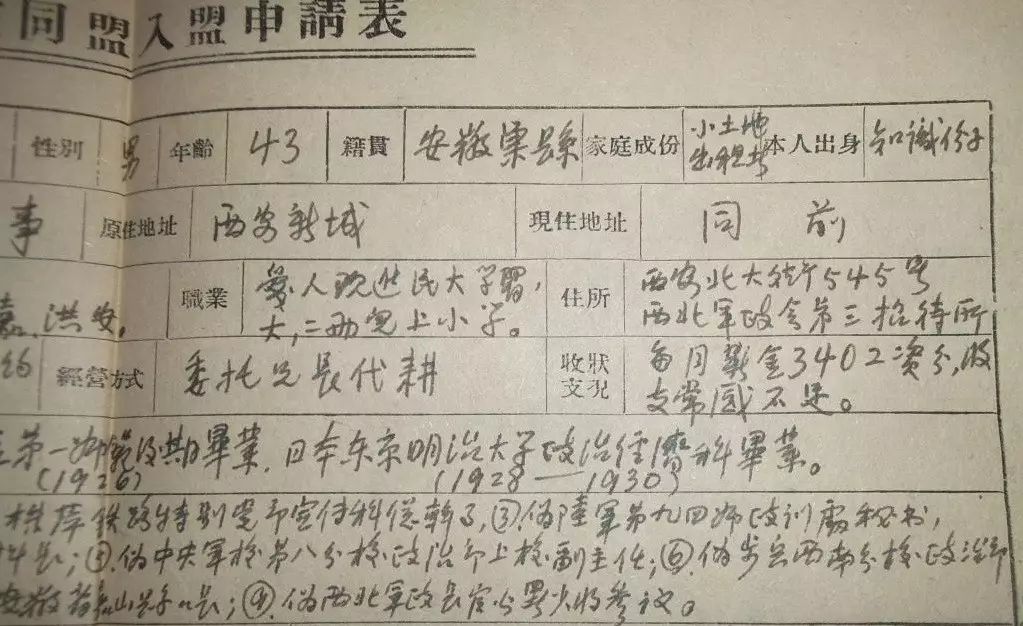 同盟入盟申請表
性別 男 年齡 43 籍貫 安徽 縣 家庭成份 小土地出租者 本人出身 知識份子
事 原住地址 西安新城 現住地址 同前
洪 職業 爱人现进民大学習，大，二两兒上小学。 住所 西安北大街545号 西北军政会第三招待所
經營方式 委托兄長代耕 收支狀況 每月薪金3402资分，收支常感不足。
第一师範 期畢業，日本东京明治大学政治经濟科畢業。
(1926) (1928—1930)
铁路特别党部宣传科 ③伪陸軍第九四师政训處秘书，
④伪中央军校第八分校政治部上校副主任；⑥伪步兵西南分校政治部
安徽省 山 長；⑨伪西北军政長官公署少将参议。